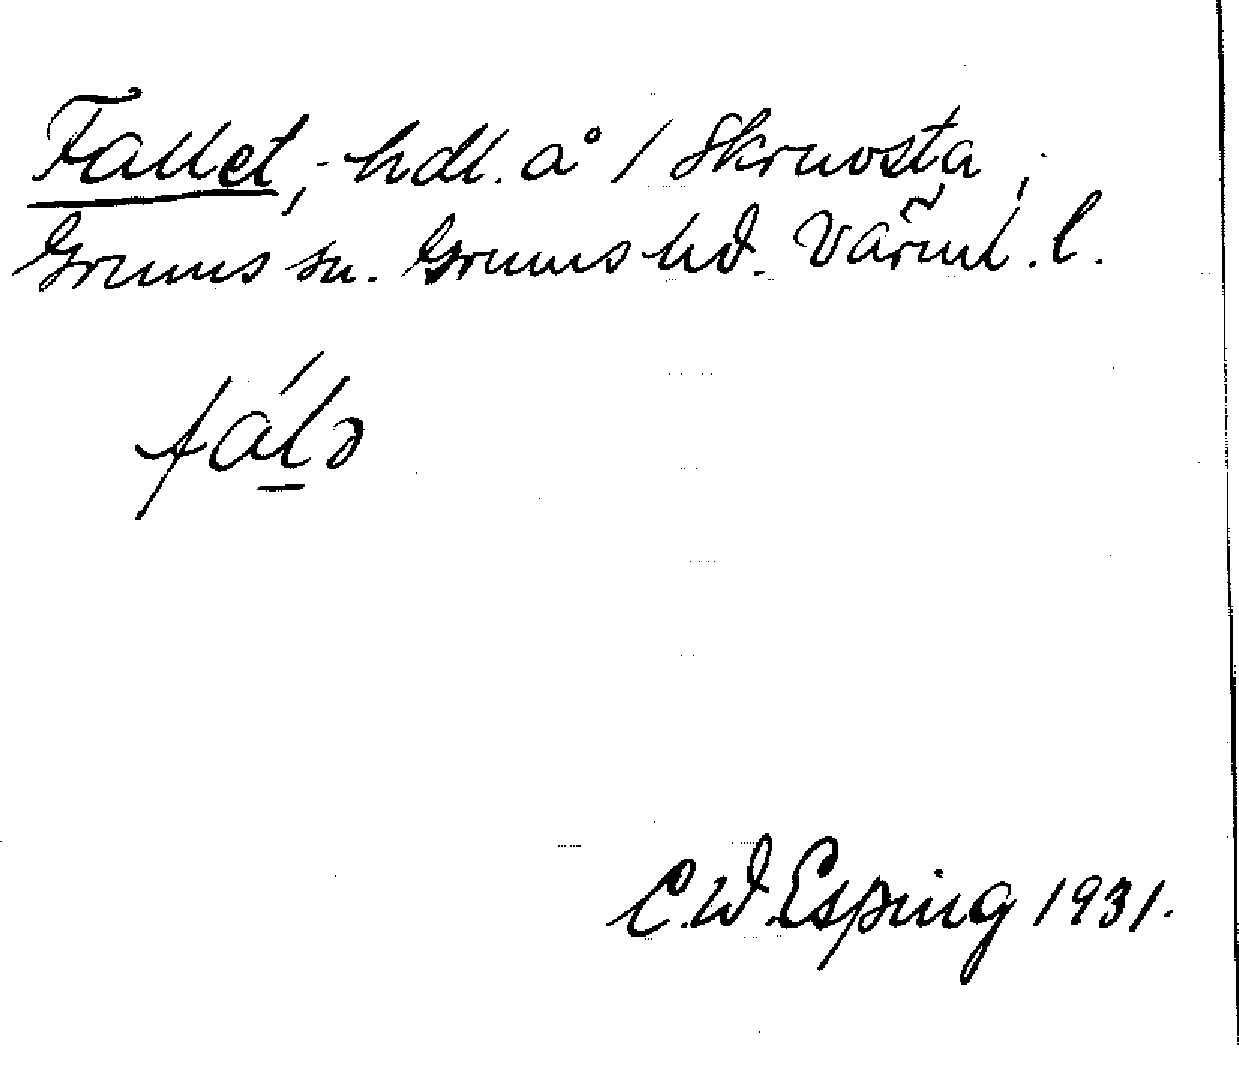 Fallet, - hdl. å 1 Skruvsta,
Grums sn. Grums hd. Värml. l.
fálə
C.W. Esping 1931.